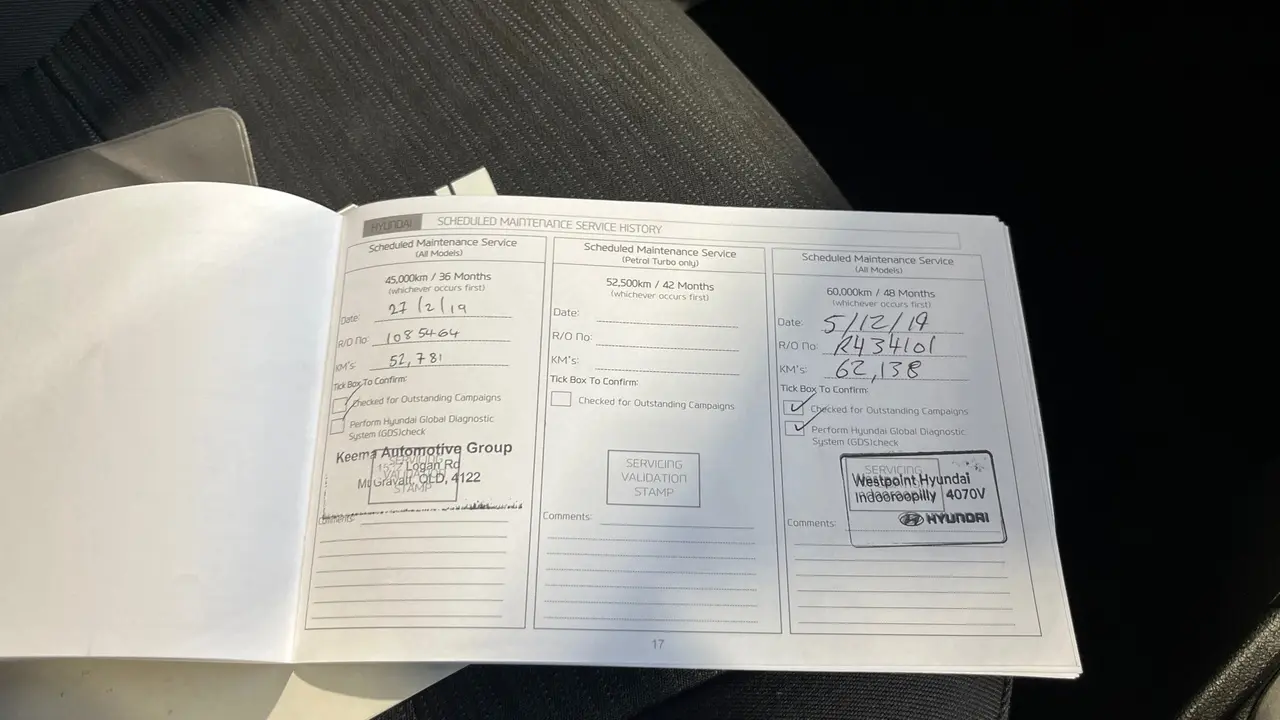 HYUNDAI SCHEDULED MAINTENANCE SERVICE HISTORY
Scheduled Maintenance Service
(All Models)
45,000km / 36 Months
(whichever occurs first)
Date: 27/2/19
R/O No: 1085464
KM's: 52,781
Tick Box To Confirm:
Checked for Outstanding Campaigns
Perform Hyundai Global Diagnostic
System (GDS)check
Keema Automotive Group
Logan Rd
Mt Gravatt, QLD, 4122
SERVICING
VALIDATION
STAMP
Comments:
Scheduled Maintenance Service
(Petrol Turbo only)
52,500km / 42 Months
(whichever occurs first)
Date:
R/O No:
KM's:
Tick Box To Confirm:
Checked for Outstanding Campaigns
SERVICING
VALIDATION
STAMP
Comments:
Scheduled Maintenance Service
(All Models)
60,000km / 48 Months
(whichever occurs first)
Date: 5/12/19
R/O No: R434101
KM's: 62,138
Tick Box To Confirm:
Checked for Outstanding Campaigns
Perform Hyundai Global Diagnostic
System (GDS)check
SERVICING
Westpoint Hyundai
Indooroopilly 4070V
HYUNDAI
Comments:
17